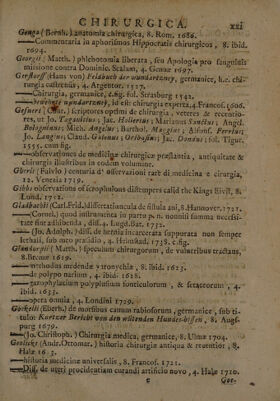 CHIRURGICA. xxi
Genga (Bernh.) anatomia chirurgica, 8. Rom, 1686.
—— Commentaria in aphorismos Hippocratis chirurgicos, 8. ibid.
1694.
Georgii (Matth.) phlebotomia liberata, seu Apologia pro sanguinis
missione contra Dominic. Scalam, 4. Genuæ 1697.
Gersdorff (Hans von) Feldbuch der wundartzney, germanice, h.e. chi-
rurgia castrensis, 4. Argentor. 1517.
—— Chirurgia, germanice, c.fig. fol. Strasburg 1542.
wundartzney, id est: chirurgia experta, 4. Francof. 1606.
Gesneri (Conr.) Scriptores optimi de chirurgia, veteres & recentio-
res, ut Jo. Tagaultius; Jac. Hollerius; Marianus Sanctus; Angel.
Bologninus; Mich. Angelus; Barthol. Maggius; Alfons. Ferrius;
Jo. Langius; Claud. Galenus; Oribasius; Jac. Dondus; fol. Tigur.
1555. cum fig.
—— observationes de medicinæ chirurgicæ præstantia, antiquitate &
chirurgis illustribus in eodem volumine.
Gherli (Fulvio) centuria d' osservazioni rare di medicina e cirurgia,
12. Venezia 1719.
Gibbs observations of scrophulous distempers called the Kings Evill, 8.
Lund. 1702.
Gladbachii (Carl. Frid.) dissertatiuncula de fistula ani, 8. Hannover. 1721.
—— (Cornel.) quod instrumenta in partu p. n. nonnisi summa necessi-
tate sint adhibenda, diss. 4. Lugd. Bat. 1732.
—— (Jo. Adolph.) diss. de hernia incarcerata suppurata non semper
lethali, sub meo præsidio, 4. Helmstad. 1738. c. fig.
Glandorpii (Matth.) speculum chirurgorum, de vulneribus tractans,
8. Bremæ 1619.
—— methodus medendæ paronychiæ, 8. ibid. 1623.
—— de polypo narium, 4. ibid. 1628.
—— gazophylacium polyplusium fonticulorum, & setaceorum, 4
ibid. 1633.
—— opera omnia, 4. Londini 1729.
Gockelii (Eberh.) de morsibus canum rabiosorum, germanice, sub ti-
tulo: Kurtzer Bericht von den wütenden Hundes-bissen, 8. Augs-
purg 1679.
—— (Jo. Christoph.) Chirurgia medica, germanice, 8. Ulmæ 1704.
Goelicke (Andr. Ottomar.) historia chirurgiæ antiqua & recentior, 8.
Halæ 1713.
—— historia medicinæ universalis, 8. Francof. 1721.
—— Diss. de uteri procidentiam curandi artificio novo, 4. Halæ 1710.
c Goe-